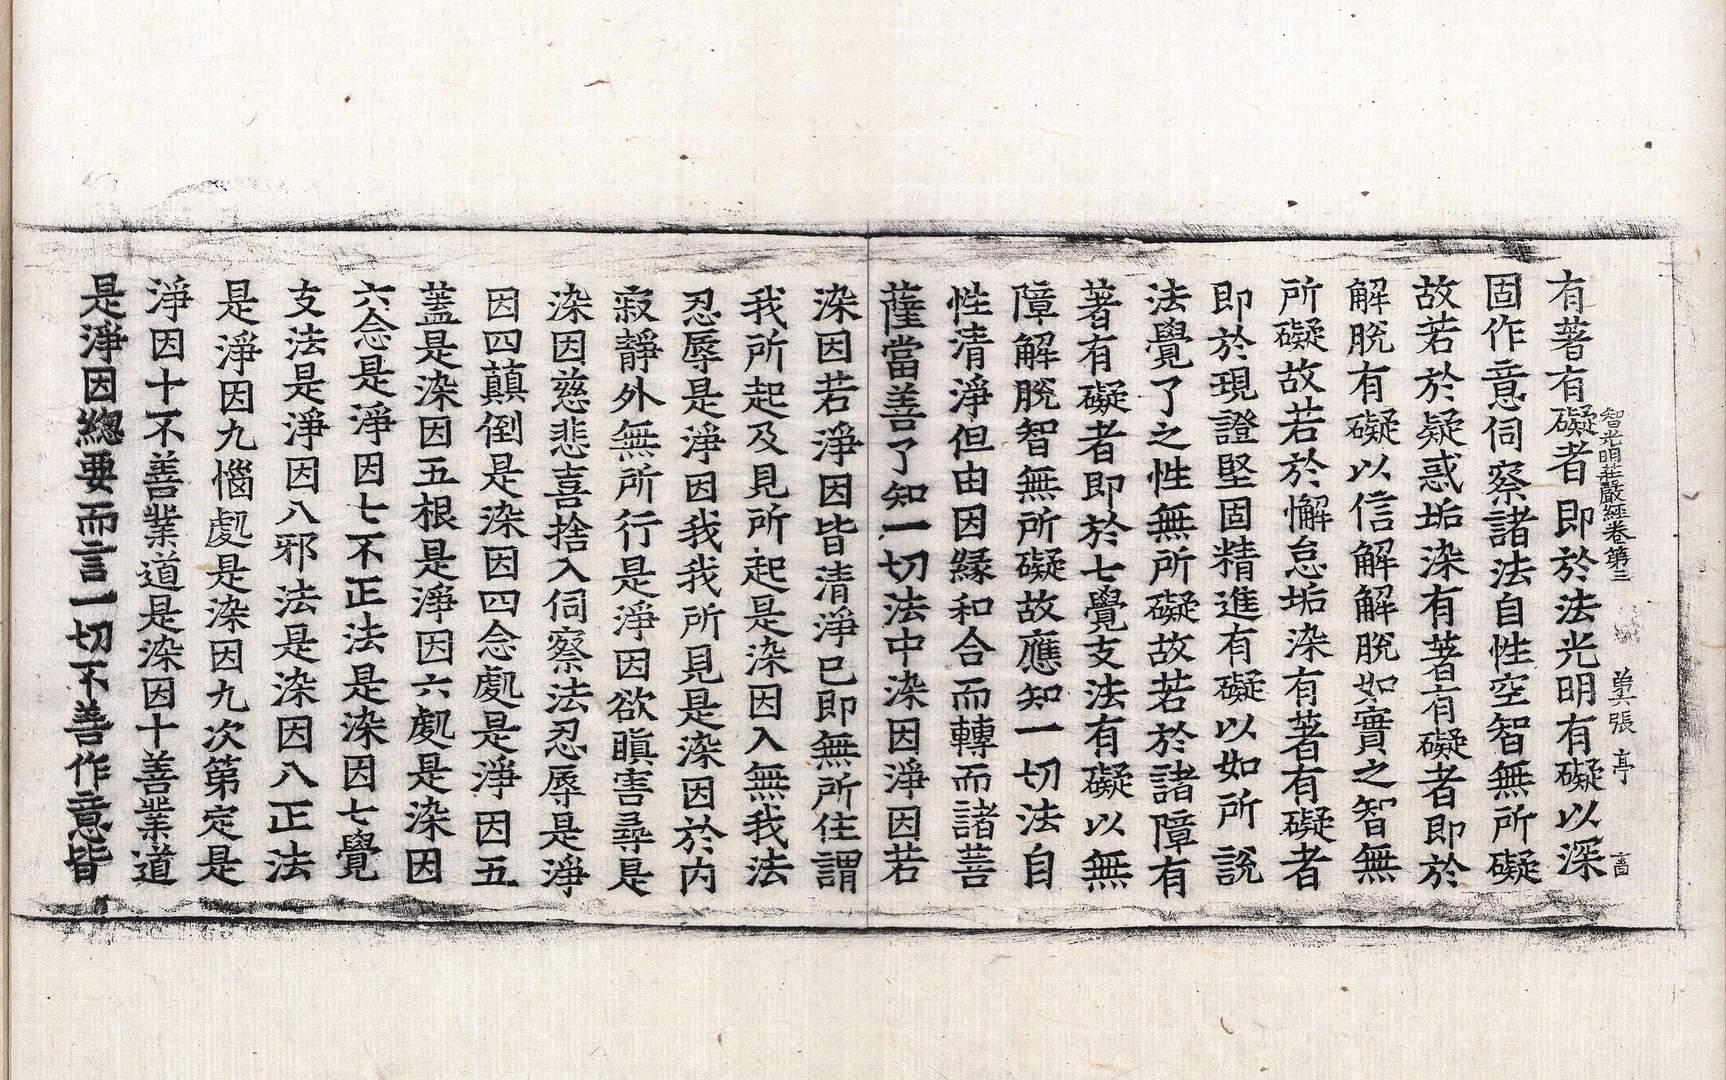 智光明莊嚴經卷第三 張 亭
有著有礙者即於法光明有礙以深
固作意伺察諸法自性空智無所礙
故若於疑惑垢染有著有礙者即於
解脫有礙以信解解脫如實之智無
所礙故若於懈怠垢染有著有礙者
即於現證堅固精進有礙以如所說
法覺了之性無所礙故若於諸障有
著有礙者即於七覺支法有礙以無
障解脫智無所礙故應知一切法自
性清淨但由因緣和合而轉而諸菩
薩當善了知一切法中染因淨因若
染因若淨因皆清淨已即無所住謂
我所起及見所起是染因入無我法
忍辱是淨因我我所見是染因於内
寂靜外無所行是淨因欲瞋害尋是
染因慈悲喜捨入伺察法忍辱是淨
因四顚倒是染因四念處是淨因五
蓋是染因五根是淨因六處是染因
六念是淨因七不正法是染因七覺
支法是淨因八邪法是染因八正法
是淨因九惱處是染因九次第定是
淨因十不善業道是染因十善業道
是淨因總要而言一切不善作意皆